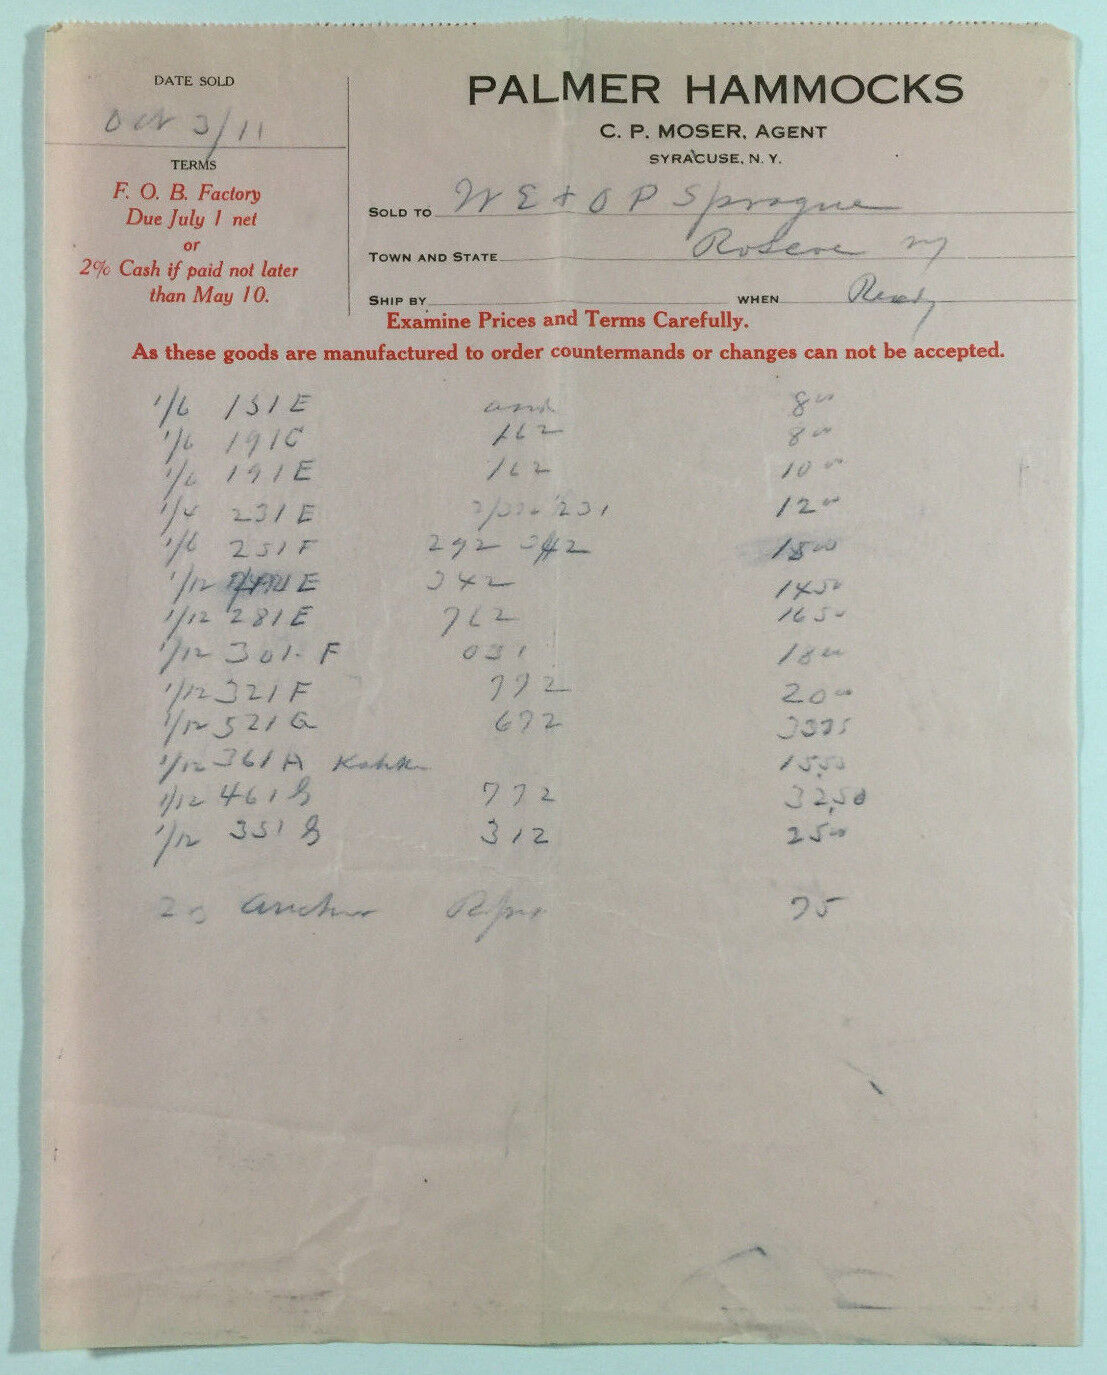 DATE SOLD
Oct 3/11
TERMS
F. O. B. Factory
Due July 1 net
or
2% Cash if paid not later
than May 10.
PALMER HAMMOCKS
C. P. MOSER, AGENT
SYRACUSE, N. Y.
SOLD TO W E + O P Sprague
TOWN AND STATE Roscoe NY
SHIP BY WHEN Ready
Examine Prices and Terms Carefully.
As these goods are manufactured to order countermands or changes can not be accepted.
1/6 151 E asst 8 00
1/6 191 C 162 8 00
1/6 191 E 162 10 00
1/4 231 E 231 12 00
1/6 251 F 292 342 15 00
1/12 E 342 14 50
1/12 281 E 762 16 50
1/12 301 F 031 18 00
1/12 321 F 772 20 00
1/12 521 G 672 33 75
1/12 361 A 15.50
1/12 461 G 772 32.50
1/12 351 G 312 25 00
2 Anchor Ropes 75